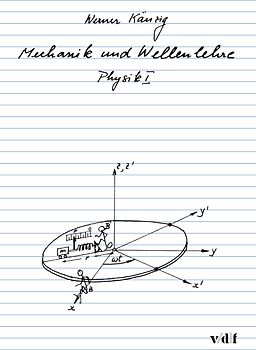 Werner Känzig
Mechanik und Wellenlehre
Physik I
z, z'
y'
B
r
y
ωt
x'
x
A
v/d/f